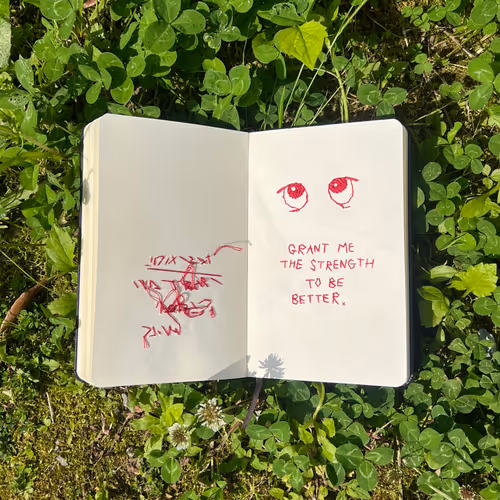 GRANT ME
THE STRENGTH
TO BE
BETTER.